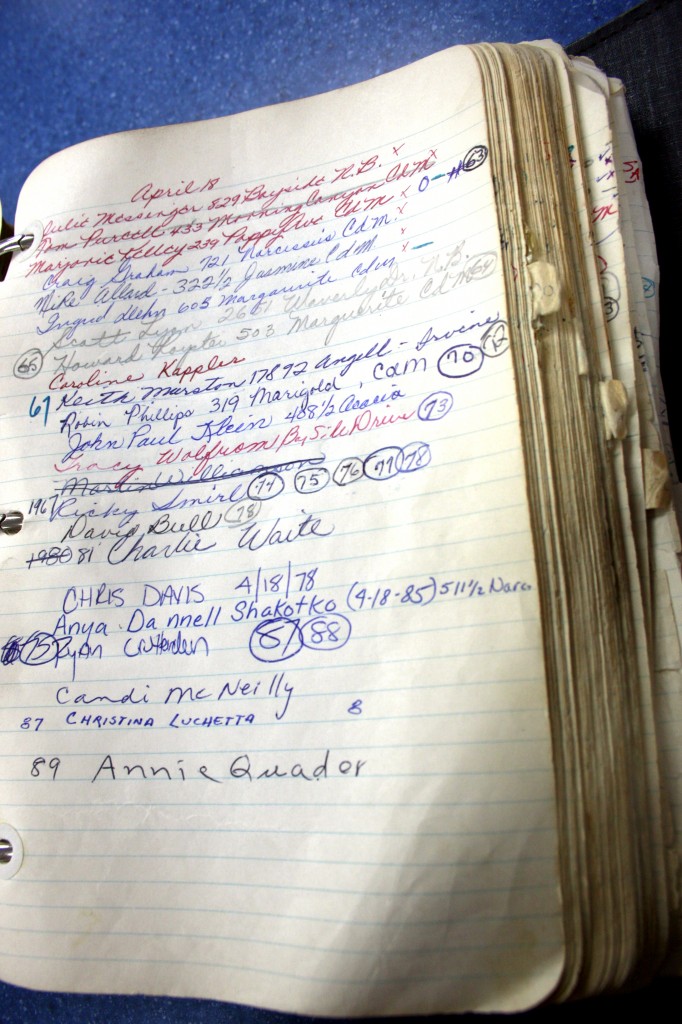 April 18
Julie Messenger 829 Bayside N.B. x
Tom Purcell 433 Morning Canyon CdM x
Marjorie Kelley 239 Poppy Ave CdM x 0 - # 63
Craig Graham 721 Narcissus CdM. x
Mike Allard - 322 1/2 Jasmine CdM
Ingrid 605 Marguerite CdM x -
Scott Lynn 2661 Waverly Dr. N.B.
65 Howard 503 Marguerite CdM 64
Caroline Kappler
67 Keith Marston 17892 Angell - Irvine
Robin Phillips 319 Marigold, CdM 70 72
John Paul Klein 408 1/2 Acacia
Tracy Wolfrom BySide Drive 73
Martin Williamson
1967 Ricky Smirl 74 75 76 77 78
David Bull 78
1980 81 Charlie Waite
CHRIS DAVIS 4/18/78
Anya Dannell Shakotko (4-18-85) 511 1/2 Narc
75 Ryan 87 88
Candi McNeilly
87 CHRISTINA LUCHETTA 8
89 Annie Quador